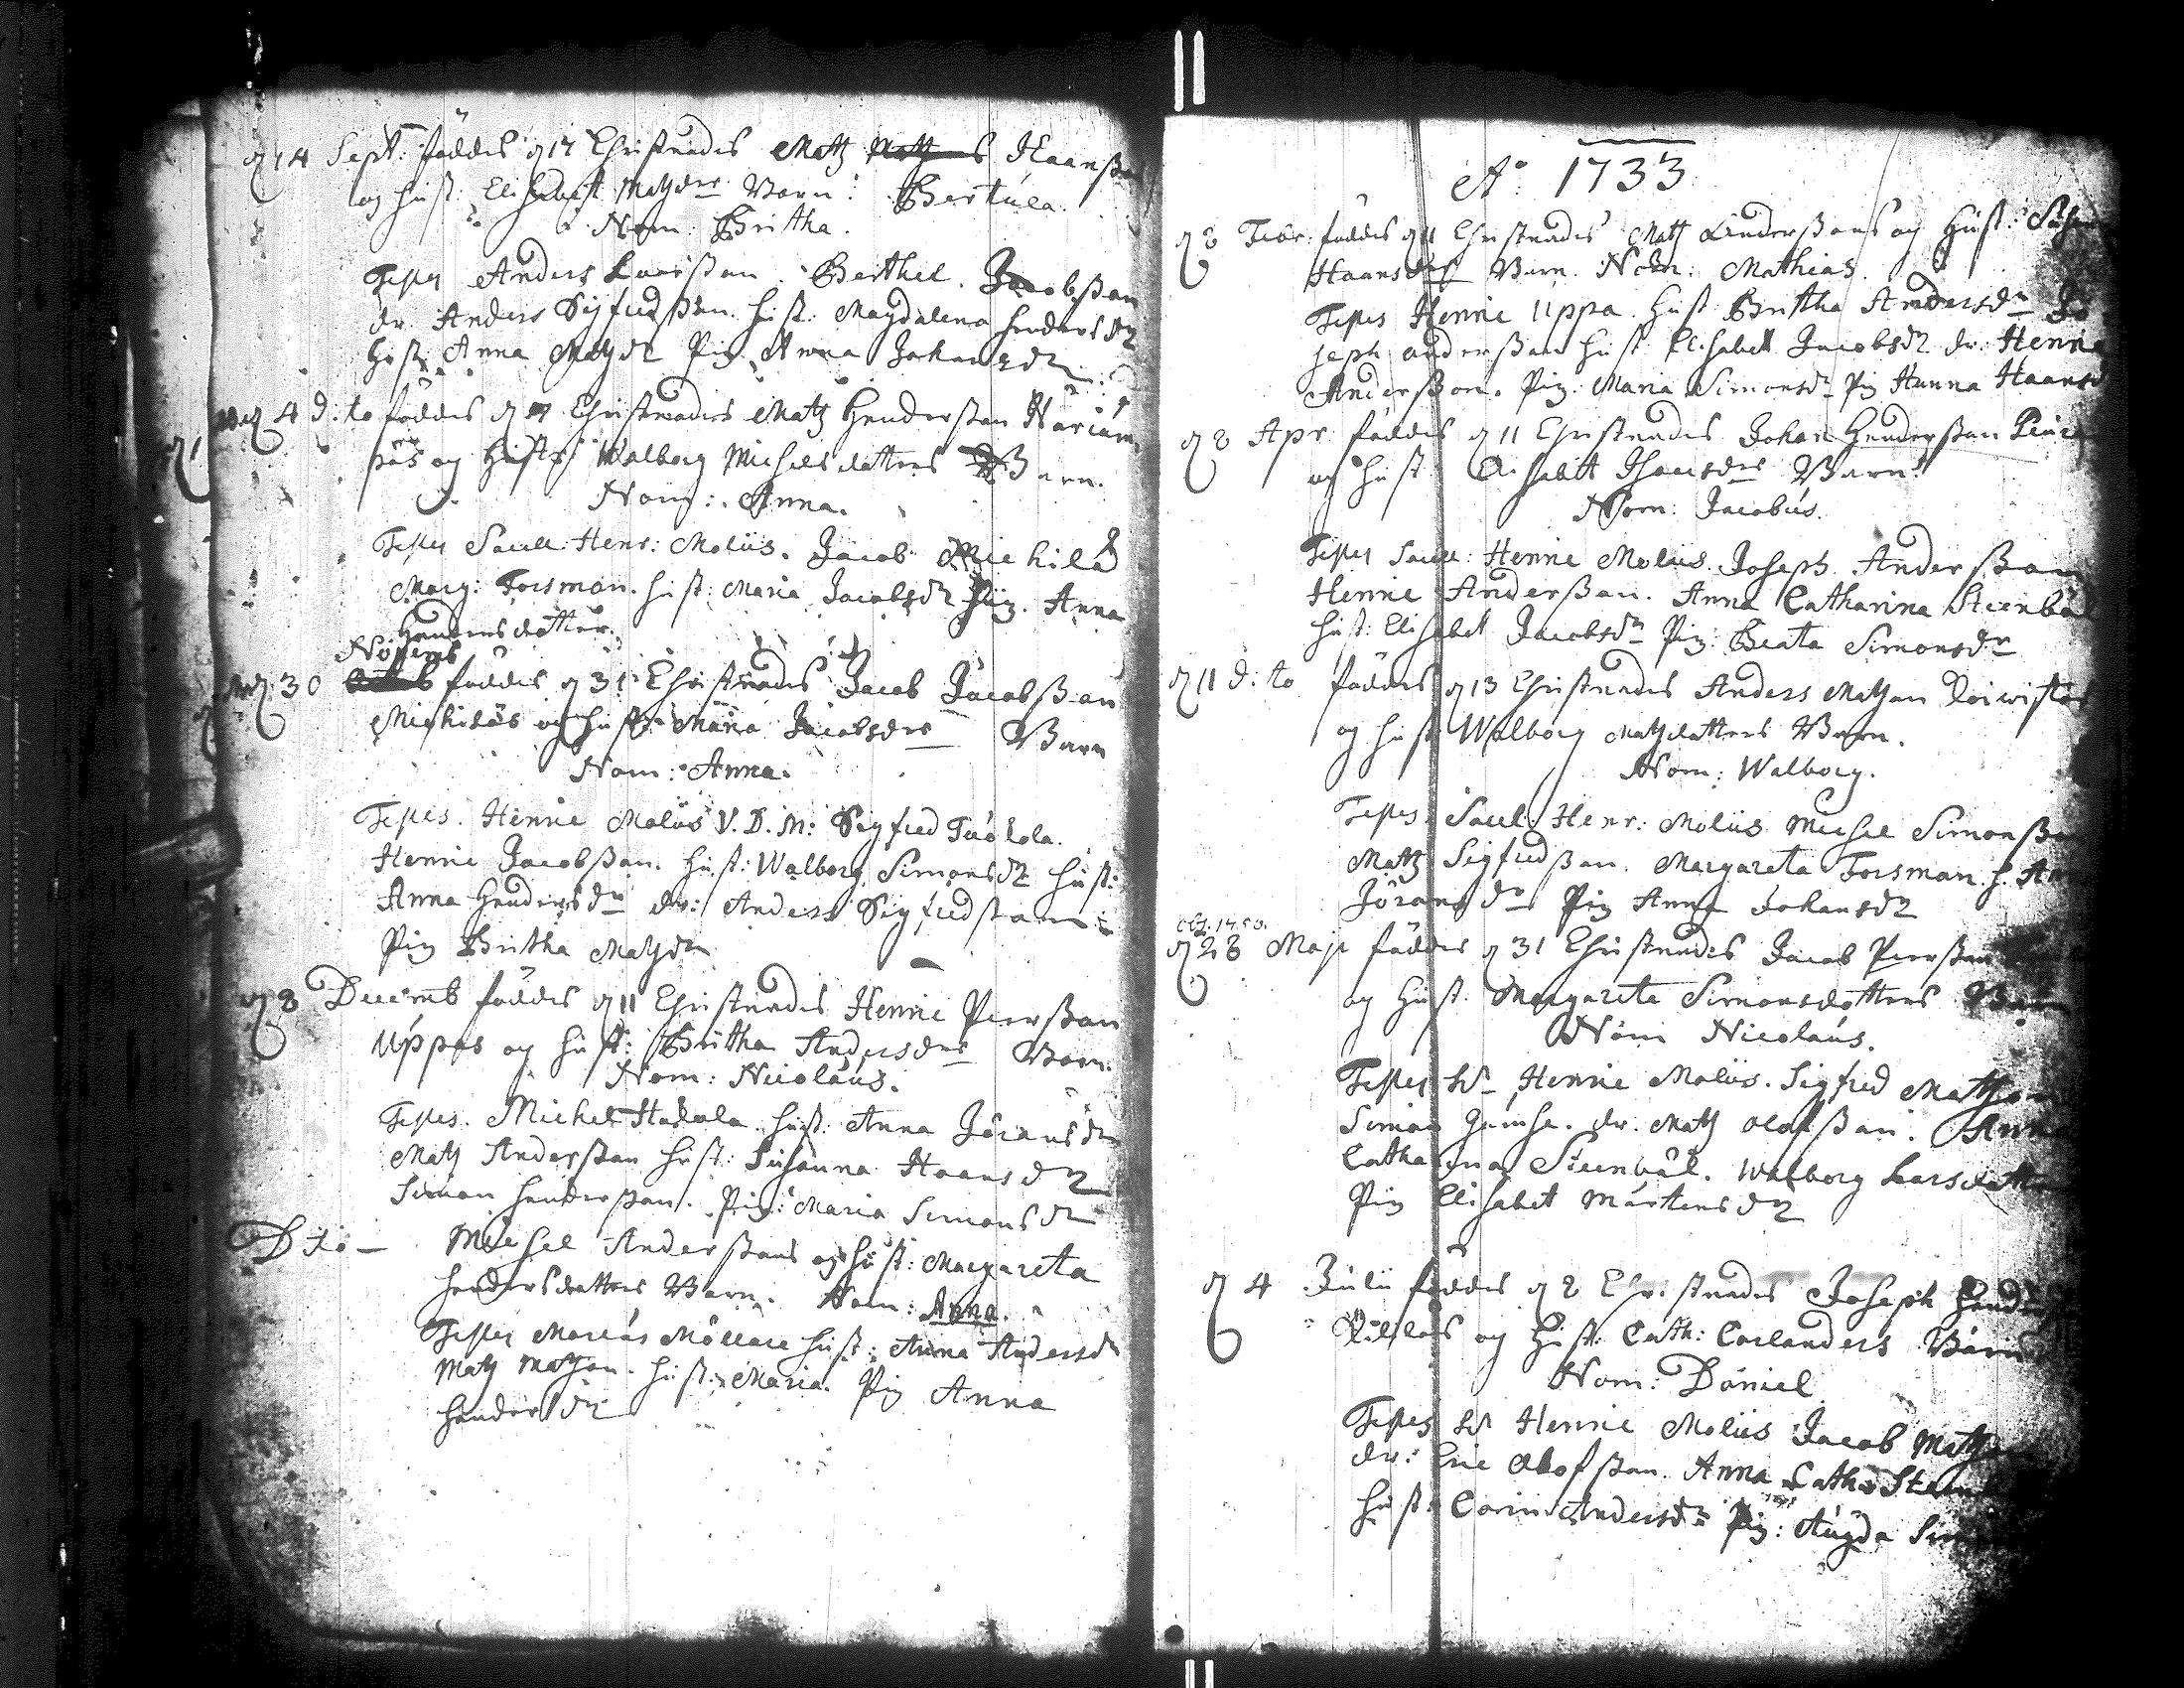 d 14 Sept: föddes d 17 Christnades Matz Haansßon
og hust: Elisabett Matzdrs Barn: Bertula.
Nom: Britha.
Testes Anders Larsßon. Berthel Jacobsßon
dr. Anders Sigfredsßon. hust: Magdalena hendersdr
hust: Anna Matzdr Pig. Anna Johansdr
d 4 d:to föddes d 7 Christnades Matz Hendersßon
og Hustrs Walborg Michelsdotters Barn.
Nom: Anna.
Testes Sacell: Henr: Molüs. Jacob Michilä
Marg: Forsman. hust: Maria Jacobsdr Pig. Anna
Hendersdotter.
Novemb
d 30 föddes d 31 Christnades Jacob Jacobsßon
Michiläs og hust: Maria Jacobsdrs Barn
Nom: Anna.
Testes. Henric Molius V. D. M: Sigfred Tuokola.
Henric Jacobsßon. hust: Walborg Simonsdr hust:
Anna Hendersdr dr: Anders Sigfredsßon
Pig Britha Matzdr
d 8 Decemb föddes d 11 Christnades Henric Peersßon
Uppas og hust: Britha Andersdrs Barn.
Nom: Nicolaus.
Testes. Michel Hakola. hust: Anna Jöransdr
Matz Andersßon hust: Susanna Haansdr
Simon hendersßon. Pig: Maria Simonsdr
Dto – Michel Andersßons og hust: Margareta
hendersdotters Barn. Nom: Anna.
Testes Marcus Möllare hust: Anna Andersdr
Matz Matzon. hust: Maria. Pig Anna
hendersdr
Ao: 1733
d 8 Febr: föddes d 11 Christnades Matz Andersßons og Hust:
Haansdrs Barn. Nom: Mathias.
Testes Henric Uppa. hust Britha Andersdr Jo
seph andersßon hust Elisabett Jacobsdr dr. Henric
Andersßon. Pig. Maria Simonsdr Pig Hanna Haansd
d 8 Apr föddes d 11 Christnades Johan Hendersßon
og hust: Elisabett Barn:
Nom: Jacobus.
Testes Sacell: Henric Molius. Joseph Andersßon
Henric Andersßon. Anna Catharina
hust: Elisabett Jacobsdr Pig: Beata Simonsdr
d 11 d:to föddes d 13 Christnades Anders Matzon Koiwistos
og hust Walborg Matzdotters Barn.
Nom: Walborg.
Testes Sacel: Henr: Molius Michel Simonsßon
Matz Sigfredsßon. Margareta Forsman. h.
Jöransdr Pig Anna Johansdr
obt. 1750.
d 28 Maji föddes d 31 Christnades Jacob Peersßon
og Hust: Margareta Simonsdotters Barn
Nom Nicolaus.
Testes Hr Henric Molius. Sigfred Matzon
Simon dr. Matz Olofsßon. Anna
Catharina Walborg Larsdotter
Pig Elisabet Mårtensdr
d 4 Julii föddes d 8 Christnades Joseph
og Hust: Cath: Corlanders Barn
Nom: Daniel
Testes Hr Henric Molius Jacob
dr: Eric Olofsßon. Anna Cath:
hust: Carin Andersdr Pig: